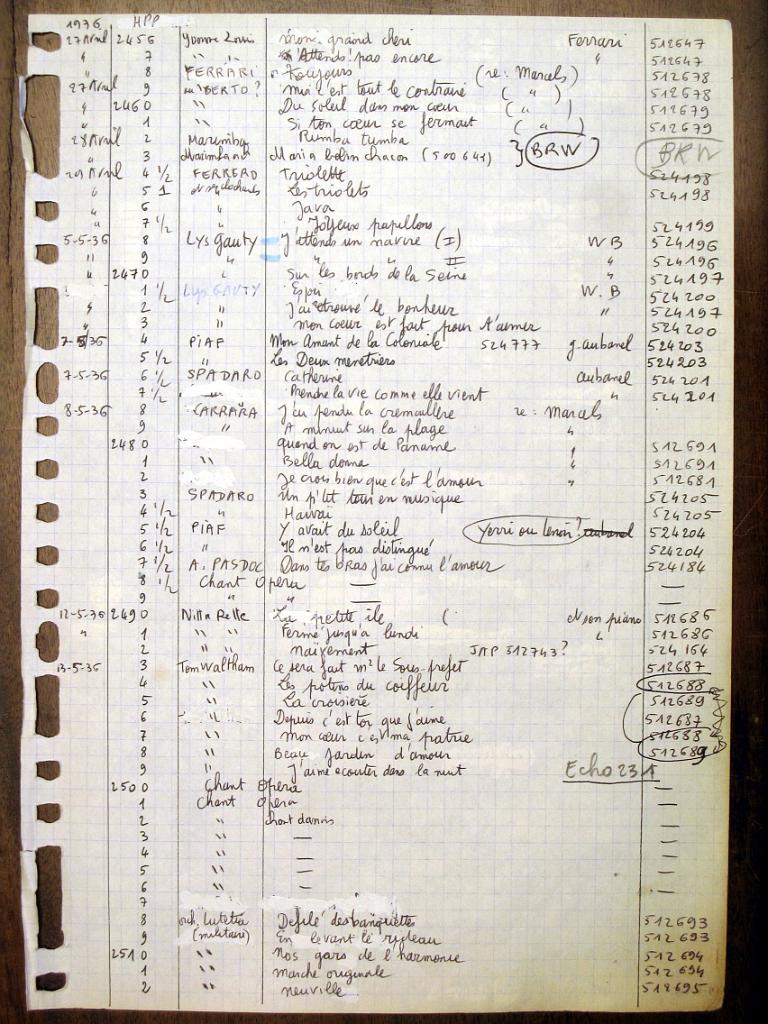 1936 HPP
27 Avril 2456 Yvonne Louis grand cheri Ferrari 512647
" 7 " " Attends pas encore " 512647
" 8 FERRARI Toujours (re: Marcels) 512678
27 Avril 9 BERTO? Mui c'est tout le contraire ( " ) 512678
" 2460 " Du soleil dans mon cœur ( " ) 512679
" 1 " Si ton cœur se fermait ( " ) 512679
28 Avril 2 Marimba Rumba tumba } BRW BRW
" 3 Marimband Maria belen chacon (500641)
29 Avril 4 1/2 FERRERO Triolett 524198
" 5 1 Les triolets 524198
" 6 " Java
" 7 1/2 " Joyeux papillons 524199
5-5-36 8 Lys Gauty J'attends un navire (I) WB 524196
" 9 " " II " 524196
" 2470 " Sur les bords de la Seine " 524197
1 1/2 Lys GAUTY Espri W.B 524200
" 2 " J'ai trouvé le bonheur " 524197
" 3 " mon coeur est fait pour t'aimer 524200
7-5-36 4 PIAF Mon Amant de la Coloniale 524777 g. aubanel 524203
5 1/2 Les Deux menetriers 524203
7-5-36 6 1/2 SPADARO Catherine aubanel 524201
7 1/2 Prendre la vie comme elle vient " 524201
8-5-36 8 CARRARA J'ai pendu la cremaillere re: Marcels
9 " A minuit sur la plage "
2480 quand on est de Paname " 512691
1 " Bella donna " 512691
2 Je crois bien que c'est l'amour " 512681
3 SPADARO Un p'tit tour en musique 524205
4 1/2 Hawaï 524205
5 1/2 PIAF Y avait du soleil Yerri ou Lenoir? aubanel 524204
6 1/2 " Il n'est pas distingué 524204
7 1/2 A. PASDOC Dans tes bras j'ai connu l'amour 524184
8 1/2 Chant Opera — —
9 " — —
12-5-36 2490 Nilla Relle La petite ile ( et son piano 512686
" 1 " " Ferme jusqu'a lundi " 512686
2 " " naïvement JAP 312743? 524164
13-5-36 3 Tom Waltham Ce sera fait mr le Sous-prefet 512687
4 " Les potins du coiffeur 512688
5 " La croisiere 512689
6 " Depuis c'est toi que j'aime 512687
7 " Mon cœur c'est ma patrie 512688
8 " Beau jardin d'amour 512689
9 " J'aime ecouter dans la nuit Echo 231
2500 Chant Opera —
1 Chant Opera —
2 " chant danois —
3 " — —
4 " — —
5 " — —
6 " — —
7
8 orch. Lutetia Defilé des banquettes 512693
9 (militaire) En levant le rideau 512693
2510 " Nos gars de l'harmonie 512694
1 " marche originale 512694
2 " neuville 512695